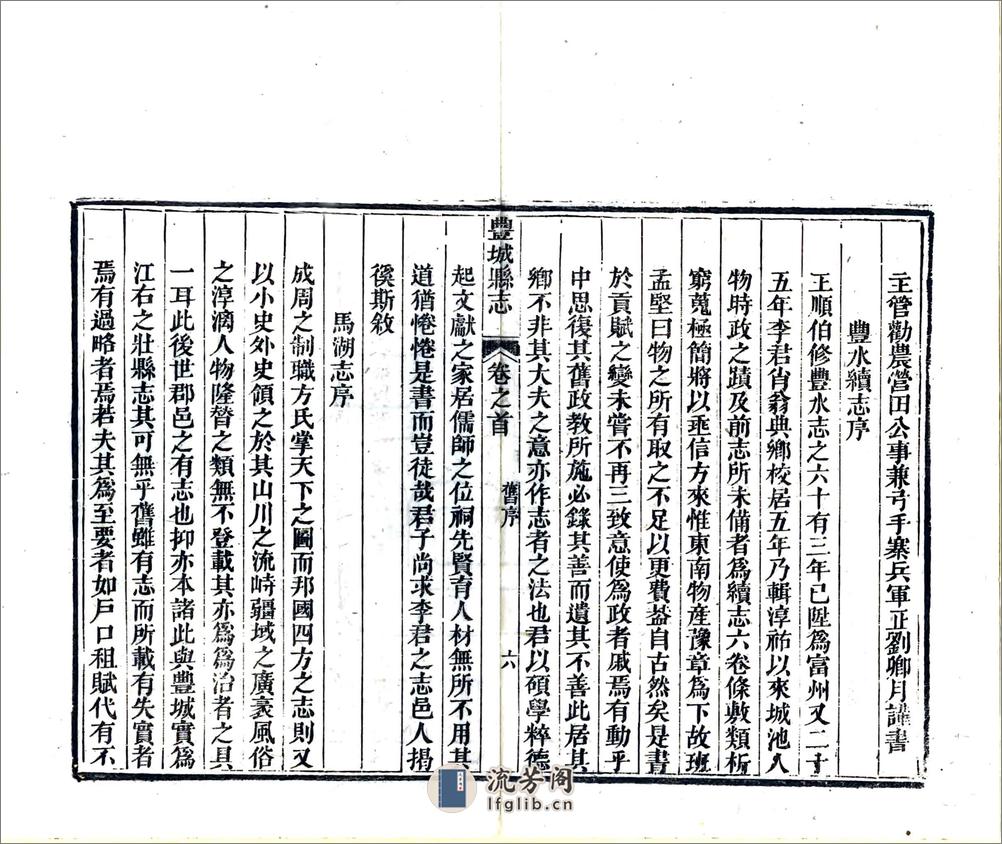 主管勸農營田公事兼弓手寨兵軍正劉卿月謹書
豐水續志序
王順伯修豐水志之六十有三年已陞為富州又二十
五年李君肖翁典鄉校居五年乃輯淳祐以來城池人
物時政之蹟及前志所未備者為續志六卷條敷類析
窮蒐極簡將以垂信方來惟東南物產豫章為下故班
孟堅曰物之所有取之不足以更費葢自古然矣是書
於貢賦之變未嘗不再三致意使為政者戚焉有動乎
中思復其舊政教所施必錄其善而遺其不善此居其
鄉不非其大夫之意亦作志者之法也君以碩學粹德
豐城縣志
卷之首
舊序
六
起文獻之家居儒師之位祠先賢育人材無所不用其
道猶惓惓是書而豈徒哉君子尚求李君之志邑人揭
徯斯敘
馬湖志序
成周之制職方氏掌天下之圖而邦國四方之志則又
以小史外史領之於其山川之流峙疆域之廣袤風俗
之淳漓人物隆替之類無不登載其亦為為治者之具
一耳此後世郡邑之有志也抑亦本諸此與豐城實為
江右之壯縣志其可無乎舊雖有志而所載有失實者
焉有過略者焉若夫其為至要者如戶口租賦代有不
流芳阁
lfglib.cn